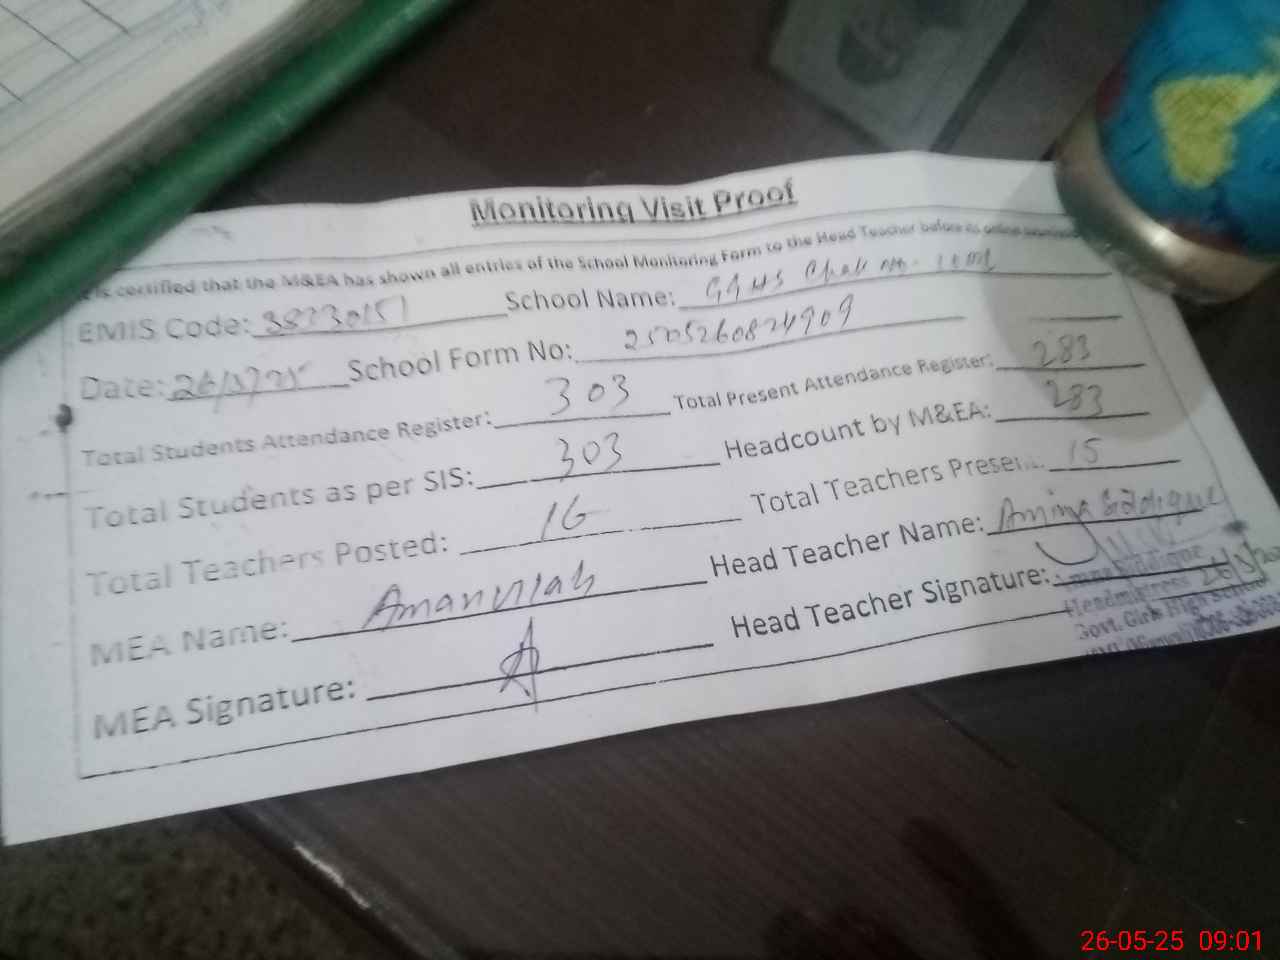 Monitoring Visit Proof
is certified that the M&EA has shown all entries of the School Monitoring Form to the Head Teacher before its online
EMIS Code: 38230151 School Name: GGHS Chak No.
Date: 26/5/25 School Form No: 2505260824909
Total Students Attendance Register: 303 Total Present Attendance Register: 283
Total Students as per SIS: 303 Headcount by M&EA: 283
Total Teachers Posted: 16 Total Teachers Present: 15
MEA Name: Amanullah Head Teacher Name: Amina Siddique
MEA Signature: Head Teacher Signature:
Siddique
Headmistress 26/5/
Govt. Girls High School
26-05-25 09:01